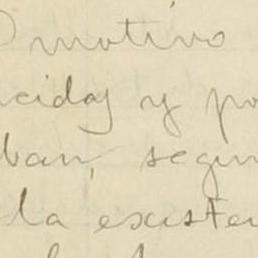 motivo
cidas y po
ban, segun
la existe